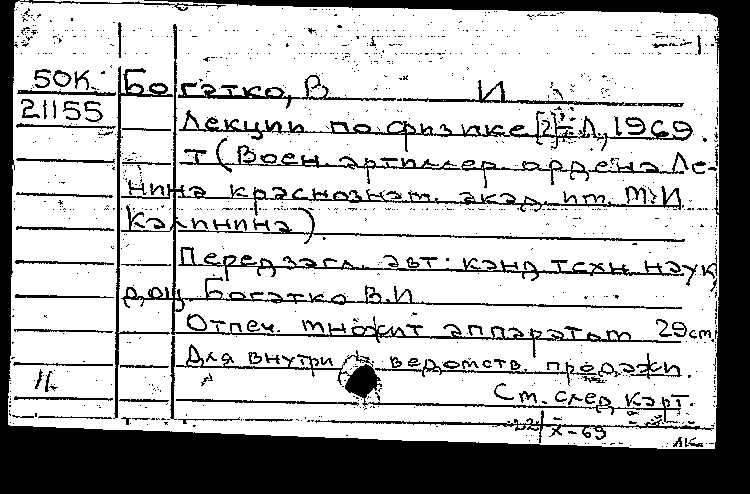 50К Богатко, В И
21155
Лекции по физике [2] Л, 1969.
т (Воен. артиллер ордена Ле-
нина краснознам. акад. им. М.И
Калинина)
Перед загл. авт: канд техн. наук,
доц. Богатко В.И.
Отпеч. множит аппаратом 29 см
Для внутри ведомств. продажи.
11. См. след. карт.
22/X-69